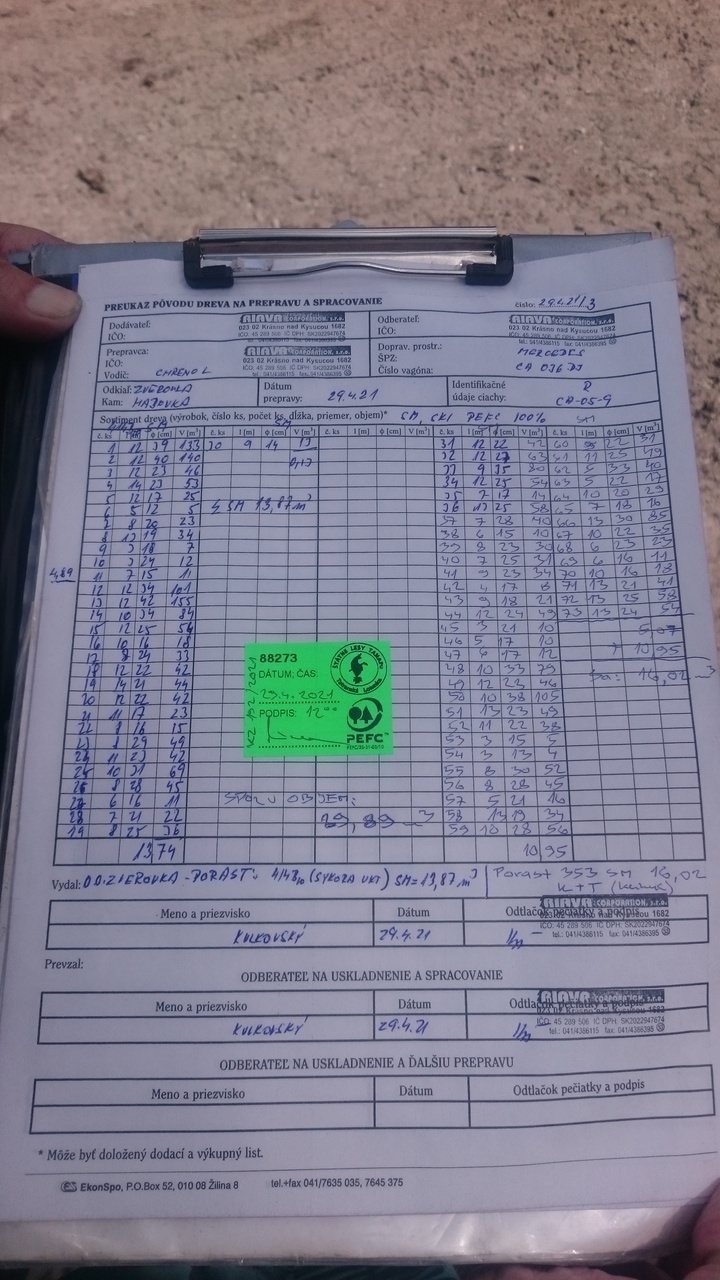 PREUKAZ PÔVODU DREVA NA PREPRAVU A SPRACOVANIE
číslo: 29.4.21/3
Dodávateľ:
IČO:
CORPORATION, s.r.o.
023 02 Krásno nad Kysucou 1682
IČO: 45 289 506 IČ DPH: SK2022947674
tel.: 041/4386115 fax: 041/4386395
Odberateľ:
IČO:
CORPORATION, s.r.o.
023 02 Krásno nad Kysucou 1682
IČO: 45 289 506 IČ DPH: SK2022947674
tel.: 041/4386115 fax: 041/4386395
Prepravca:
IČO:
Vodič:
CORPORATION, s.r.o.
023 02 Krásno nad Kysucou 1682
IČO: 45 289 506 IČ DPH: SK2022947674
tel.: 041/4386115 fax: 041/4386395
Doprav. prostr.: MERCEDES
ŠPZ:
Číslo vagóna: CA 036 DJ
Odkiaľ: ZVEROVKA
Kam: MAJOVKA
Dátum
prepravy: 29.4.21
Identifikačné
údaje ciachy: R
CA-05-9
Sortiment dreva (výrobok, číslo ks, počet ks, dĺžka, priemer, objem)* SM, SKI PEFC 100%
SM
č. ks l [m] ϕ [cm] V [m³] č. ks l [m] ϕ [cm] V [m³] č. ks l [m] ϕ [cm] V [m³] č. ks l [m] ϕ [cm] V [m³] č. ks l [m] ϕ [cm] V [m³]
1 12 39 133 30 9 14 13 31 12 22 42
2 12 40 140 0,13 32 12 27 63
3 12 23 46 33 9 35 80 62 5 33 40
4 14 23 53 34 12 25 54 63 5 22 17
5 12 17 25 35 7 17 14 64 10 20 29
6 5 12 5 Σ SM 13,87 m³ 36 12 25 58 65 7 18 16
7 8 20 23 37 7 28 40 66 13 30 85
8 13 19 34 38 6 15 10 67 10 22 35
9 3 18 7 39 8 23 30 68 6 23 23
10 3 24 12 40 7 25 31 69 6 16 11
4,89
11 7 15 11 41 9 23 34 70 10 16 18
12 12 34 101 42 4 17 8 71 13 21 41
13 12 42 155 43 9 18 21 72 13 25 58
14 10 34 84 44 12 24 49 73 13 24 54
15 12 25 54 45 3 21 10 5,07
16 10 16 18 46 5 17 10
17 8 24 33 47 6 17 12 + 10,95
18 12 22 42 48 10 33 79 16,02 m³
19 14 21 44 49 12 23 46
20 12 22 42 50 10 38 105
21 11 17 23 51 13 23 49
22 8 16 15 52 11 22 38
23 8 29 49 53 3 15 5
24 11 23 42 54 3 13 4
25 10 31 69 55 8 30 52
26 8 28 45 56 8 28 45
27 6 16 11 57 5 21 16
28 7 21 22 58 13 19 34
29 8 25 36 59 10 28 56
13,74 10,95
SPOLU OBJEM:
29,89 m³
88273
DÁTUM; ČAS:
29.4.2021
PODPIS: 12⁰⁰
ŠTÁTNE LESY TANAPu
Tatranská Lomnica
PEFC™
Vydal: 13,87 m³ Porast 353 SM 16,02
K+T
Meno a priezvisko Dátum Odtlačok pečiatky a podpis
KULKOVSKÝ 29.4.21
CORPORATION, s.r.o.
023 02 Krásno nad Kysucou 1682
IČO: 45 289 506 IČ DPH: SK2022947674
tel.: 041/4386115 fax: 041/4386395
Prevzal:
ODBERATEĽ NA USKLADNENIE A SPRACOVANIE
Meno a priezvisko Dátum Odtlačok pečiatky a podpis
KULKOVSKÝ 29.4.21
CORPORATION, s.r.o.
023 02 Krásno nad Kysucou 1682
IČO: 45 289 506 IČ DPH: SK2022947674
tel.: 041/4386115 fax: 041/4386395
ODBERATEĽ NA USKLADNENIE A ĎALŠIU PREPRAVU
Meno a priezvisko Dátum Odtlačok pečiatky a podpis
* Môže byť doložený dodací a výkupný list.
EkonSpo, P.O.Box 52, 010 08 Žilina 8 tel.+fax 041/7635 035, 7645 375